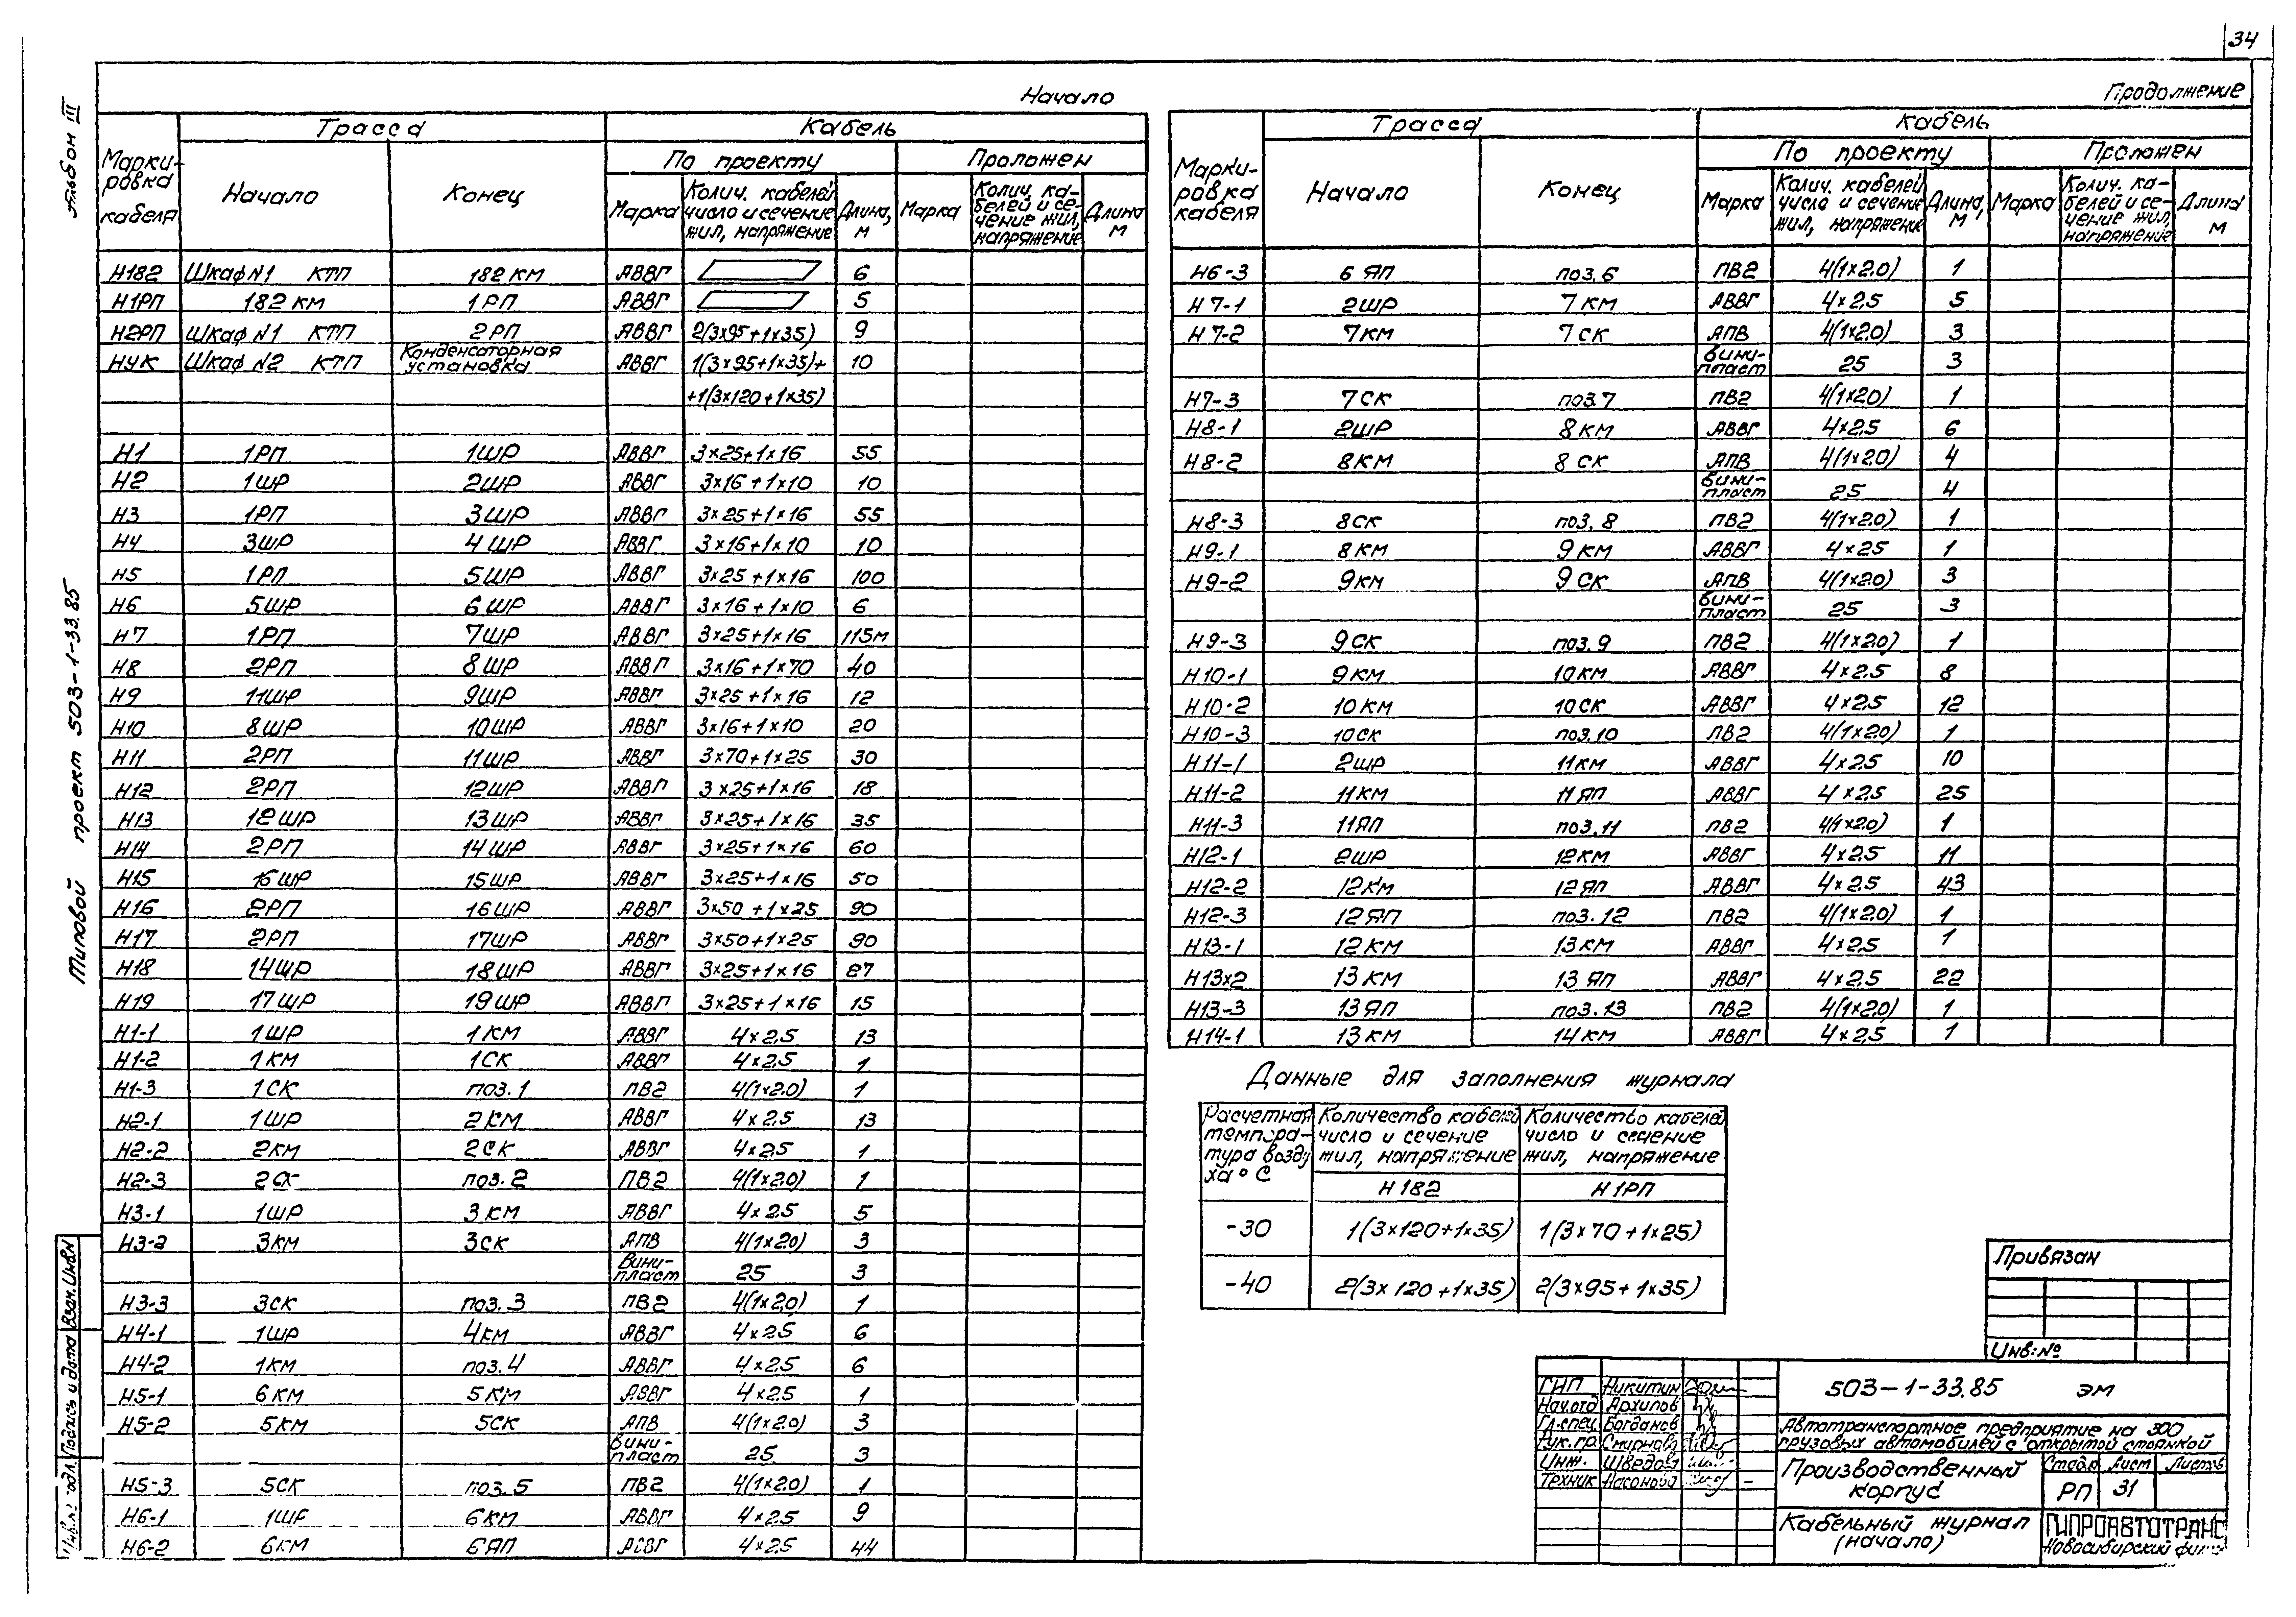 34
Альбом III
Типовой проект 503-1-33.85
Начало
Марки-ровка кабеля | Трасса | Кабель
Начало | Конец | По проекту | Проложен
Марка | Колич. кабелей число и сечение жил, напряжение | Длина, м | Марка | Колич. ка-белей и се-чение жил, напряжение | Длина м
Н182 Шкаф N1 КТП 182 КМ АВВГ 6
Н1РП 182 КМ 1РП АВВГ 5
Н2РП Шкаф N1 КТП 2РП АВВГ 2(3×95+1×35) 9
НУК Шкаф N2 КТП Конденсаторная установка АВВГ 1(3×95+1×35)+ 10
+1(3×120+1×35)
Н1 1РП 1ШР АВВГ 3×25+1×16 55
Н2 1ШР 2ШР АВВГ 3×16+1×10 10
Н3 1РП 3ШР АВВГ 3×25+1×16 55
Н4 3ШР 4ШР АВВГ 3×16+1×10 10
Н5 1РП 5ШР АВВГ 3×25+1×16 100
Н6 5ШР 6ШР АВВГ 3×16+1×10 6
Н7 1РП 7ШР АВВГ 3×25+1×16 115м
Н8 2РП 8ШР АВВГ 3×16+1×70 40
Н9 11ШР 9ШР АВВГ 3×25+1×16 12
Н10 8ШР 10ШР АВВГ 3×16+1×10 20
Н11 2РП 11ШР АВВГ 3×70+1×25 30
Н12 2РП 12ШР АВВГ 3×25+1×16 18
Н13 12ШР 13ШР АВВГ 3×25+1×16 35
Н14 2РП 14ШР АВВГ 3×25+1×16 60
Н15 16ШР 15ШР АВВГ 3×25+1×16 50
Н16 2РП 16ШР АВВГ 3×50+1×25 90
Н17 2РП 17ШР АВВГ 3×50+1×25 90
Н18 14ШР 18ШР АВВГ 3×25+1×16 27
Н19 17ШР 19ШР АВВГ 3×25+1×16 15
Н1-1 1ШР 1КМ АВВГ 4×2,5 13
Н1-2 1КМ 1СК АВВГ 4×2,5 1
Н1-3 1СК поз.1 ПВ2 4(1×2,0) 1
Н2-1 1ШР 2КМ АВВГ 4×2,5 13
Н2-2 2КМ 2СК АВВГ 4×2,5 1
Н2-3 2СК поз.2 ПВ2 4(1×2,0) 1
Н3-1 1ШР 3КМ АВВГ 4×2,5 5
Н3-2 3КМ 3СК АПВ 4(1×2,0) 3
Вини-пласт 25 3
Н3-3 3СК поз.3 ПВ2 4(1×2,0) 1
Н4-1 1ШР 4КМ АВВГ 4×2,5 6
Н4-2 1КМ поз.4 АВВГ 4×2,5 6
Н5-1 6КМ 5КМ АВВГ 4×2,5 1
Н5-2 5КМ 5СК АПВ 4(1×2,0) 3
Вини-пласт 25 3
Н5-3 5СК поз.5 ПВ2 4(1×2,0) 1
Н6-1 1ШР 6КМ АВВГ 4×2,5 9
Н6-2 6КМ 6ЯП АВВГ 4×2,5 44
Продолжение
Марки-ровка кабеля | Трасса | Кабель
Начало | Конец | По проекту | Проложен
Марка | Колич. кабелей число и сечение жил, напряжение | Длина, м | Марка | Колич. ка-белей и се-чение жил, напряжение | Длина м
Н6-3 6ЯП поз.6 ПВ2 4(1×2,0) 1
Н7-1 2ШР 7КМ АВВГ 4×2,5 5
Н7-2 7КМ 7СК АПВ 4(1×2,0) 3
Вини-пласт 25 3
Н7-3 7СК поз.7 ПВ2 4(1×2,0) 1
Н8-1 2ШР 8КМ АВВГ 4×2,5 6
Н8-2 8КМ 8СК АПВ 4(1×2,0) 4
Вини-пласт 25 4
Н8-3 8СК поз.8 ПВ2 4(1×2,0) 1
Н9-1 8КМ 9КМ АВВГ 4×25 1
Н9-2 9КМ 9СК АПВ 4(1×2,0) 3
Вини-пласт 25 3
Н9-3 9СК поз.9 ПВ2 4(1×2,0) 1
Н10-1 9КМ 10КМ АВВГ 4×2,5 8
Н10-2 10КМ 10СК АВВГ 4×2,5 12
Н10-3 10СК поз.10 ПВ2 4(1×2,0) 1
Н11-1 2ШР 11КМ АВВГ 4×2,5 10
Н11-2 11КМ 11ЯП АВВГ 4×2,5 25
Н11-3 11ЯП поз.11 ПВ2 4(1×2,0) 1
Н12-1 2ШР 12КМ АВВГ 4×2,5 11
Н12-2 12КМ 12ЯП АВВГ 4×2,5 43
Н12-3 12ЯП поз.12 ПВ2 4(1×2,0) 1
Н13-1 12КМ 13КМ АВВГ 4×2,5 1
Н13×2 13КМ 13ЯП АВВГ 4×2,5 22
Н13-3 13ЯП поз.13 ПВ2 4(1×2,0) 1
Н14-1 13КМ 14КМ АВВГ 4×2,5 1
Данные для заполнения журнала
Расчетная темпера-тура возду ха °С | Количество кабелей число и сечение жил, напряжение | Количество кабелей число и сечение жил, напряжение
Н182 Н1РП
-30 1(3×120+1×35) 1(3×70+1×25)
-40 2(3×120+1×35) 2(3×95+1×35)
Привязан
Инв.№
ГИП Никитин
Нач.отд Архипов
Гл.спец Богданов
Рук.гр. Смирнова
Инж. Шведова
Техник Насонова
503-1-33.85 ЭМ
Автотранспортное предприятие на 300
грузовых автомобилей с открытой стоянкой
Производственный корпус
Стадия Лист Листов
РП 31
Кабельный журнал (начало)
ГИПРОАВТОТРАНС
Новосибирский филиал
Взам. Инв.N
Подпись и дата
Инв.№ подл.